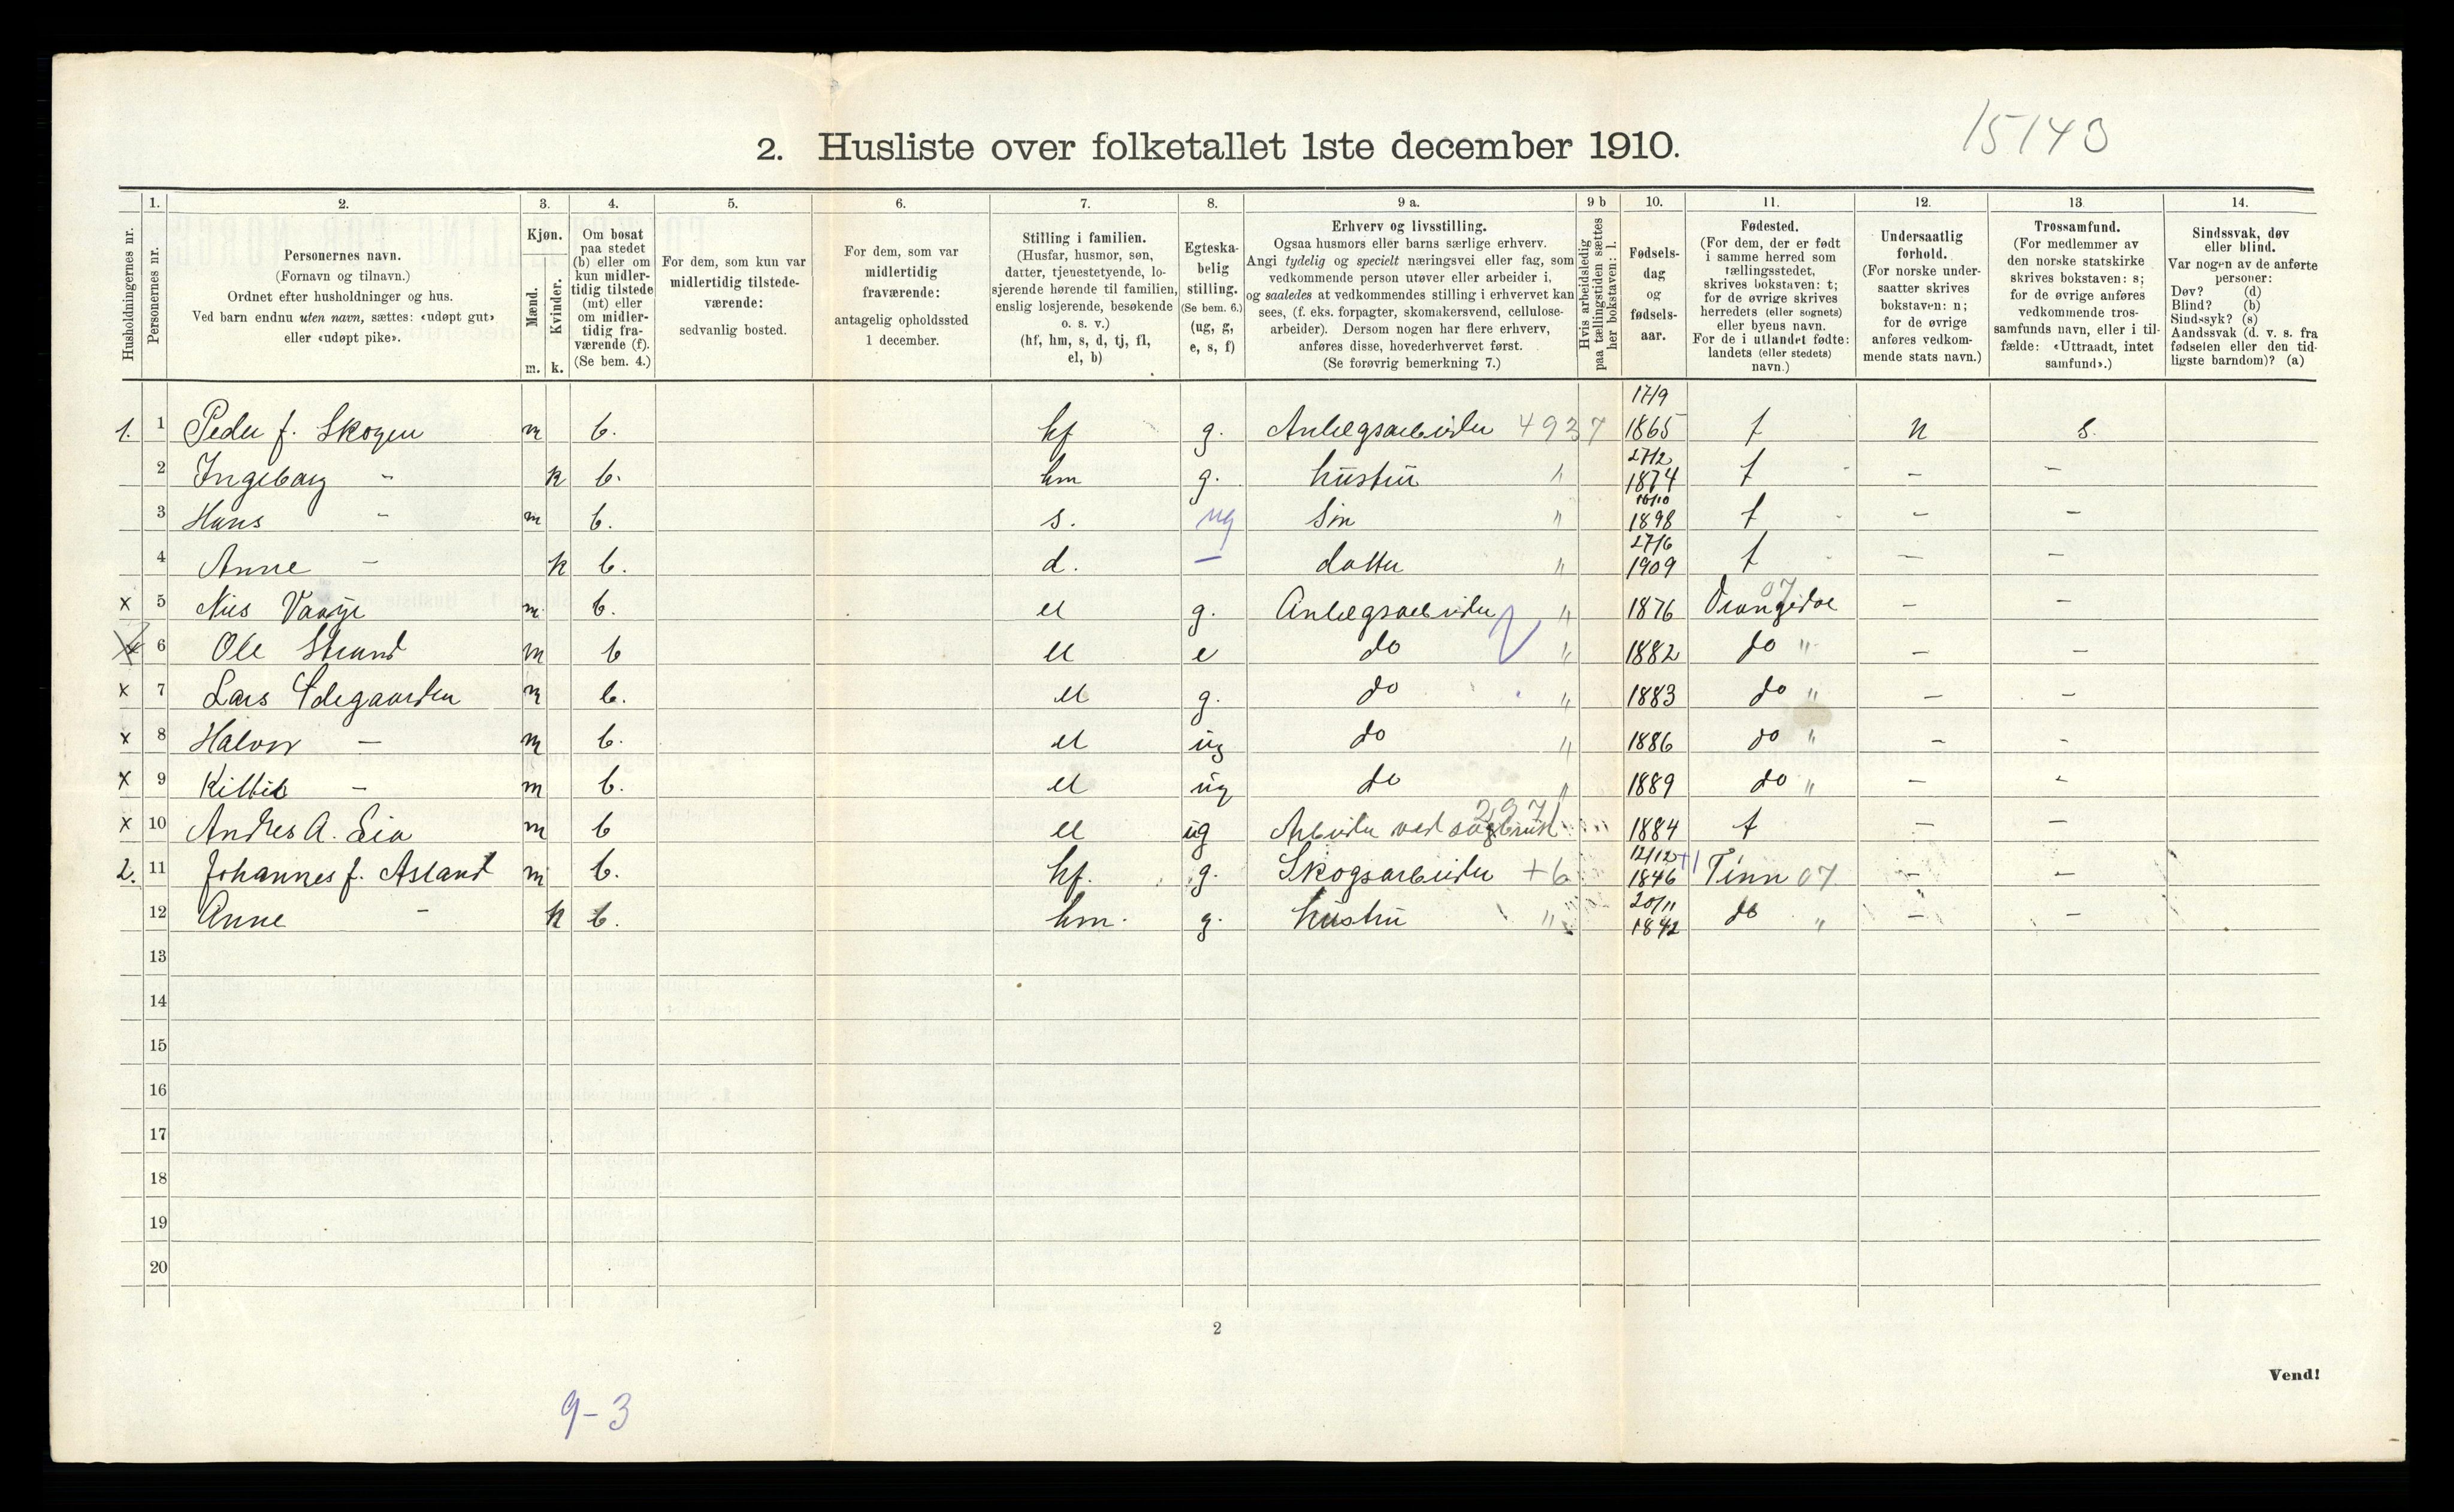 15143
2. Husliste over folketallet 1ste december 1910.
Husholdningernes nr.
1. Personernes nr.
2. Personernes navn.
(Fornavn og tilnavn.)
Ordnet efter husholdninger og hus.
Ved barn endnu uten navn, sættes: «udøpt gut»
eller «udøpt pike».
3. Kjøn.
Mænd. m.
Kvinder. k.
4. Om bosat
paa stedet
(b) eller om
kun midler-
tidig tilstede
(mt) eller
om midler-
tidig fra-
værende (f).
(Se bem. 4.)
5. For dem, som kun var
midlertidig tilstede-
værende:
sedvanlig bosted.
6. For dem, som var
midlertidig
fraværende:
antagelig opholdssted
1 december.
7. Stilling i familien.
(Husfar, husmor, søn,
datter, tjenestetyende, lo-
sjerende hørende til familien,
enslig losjerende, besøkende
o. s. v.)
(hf, hm, s, d, tj, fl,
el, b)
8. Egteska-
belig
stilling.
(Se bem. 6.)
(ug, g,
e, s, f)
9 a. Erhverv og livsstilling.
Ogsaa husmors eller barns særlige erhverv.
Angi tydelig og specielt næringsvei eller fag, som
vedkommende person utøver eller arbeider i,
og saaledes at vedkommendes stilling i erhvervet kan
sees, (f. eks. forpagter, skomakersvend, cellulose-
arbeider). Dersom nogen har flere erhverv,
anføres disse, hovederhvervet først.
(Se forøvrig bemerkning 7.)
9 b Hvis arbeidsledig
paa tællingstiden sættes
her bokstaven: l.
10. Fødsels-
dag
og
fødsels-
aar.
11. Fødested.
(For dem, der er født
i samme herred som
tællingsstedet,
skrives bokstaven: t;
for de øvrige skrives
herredets (eller sognets)
eller byens navn.
For de i utlandet fødte:
landets (eller stedets)
navn.)
12. Undersaatlig
forhold.
(For norske under-
saatter skrives
bokstaven: n;
for de øvrige
anføres vedkom-
mende stats navn.)
13. Trossamfund.
(For medlemmer av
den norske statskirke
skrives bokstaven: s;
for de øvrige anføres
vedkommende tros-
samfunds navn, eller i til-
fælde: «Uttraadt, intet
samfund».)
14. Sindssvak, døv
eller blind.
Var nogen av de anførte
personer:
Døv? (d)
Blind? (b)
Sindssyk? (s)
Aandssvak (d. v. s. fra
fødselen eller den tid-
ligste barndom)? (a)
1. 1 Peder J. Skogen m b. hf g. Anlægsarbeider 4937 17/9 1865 t n s.
2 Ingeborg - k b. hm g. hustru " 27/2 1874 t - -
3 Hans - m b. s. ug Søn " 16/10 1898 t - -
4 Anne - k b. d. - datter " 27/6 1909 t - -
x 5 Nils Vaaje m b. el g. Anlægsarbeider " 1876 Drangedal 07 - -
x 6 Ole Strand m b el e do " 1882 do " - -
x 7 Lars Ødegaarden m b. el g. do " 1883 do " - -
x 8 Halvor - m b. el ug do " 1886 do " - -
x 9 Kittil - m b. el ug do " 1889 do " - -
x 10 Andres A. Lia m b el ug Arbeider ved sagbruk 297 1884 t - -
2. 11 Johannes J. Asland m b. hf. g. Skogsarbeider +6 12/12 1846 Tinn 07 - -
12 Anne - k b. hm. g. hustru " 20/11 1842 do " - -
13
14
15
16
17
18
19
20
2
Vend!
9-3